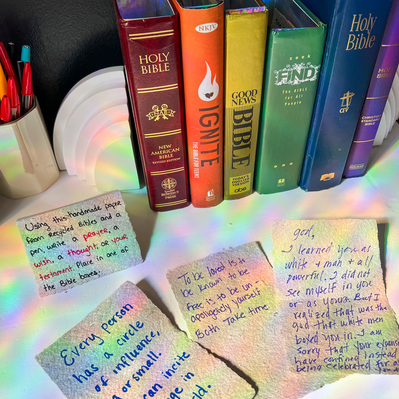 HOLY
BIBLE
NEW
AMERICAN
BIBLE
NKJV
IGNITE
GOOD
NEWS
BIBLE
FIND
The Bible for All
People
Holy
Bible
CEV
Holy Bible
Using this handmade paper
from recycled Bibles and a
pen, write a prayer, a
wish, a thought or your
testament. Place in one of
the Bible frames.
Every person
has a circle
of influence,
or small.
can incite
in
To be loved is to
be known to be
free is to be un-
apologetically yourself
Both take time
god,
I learned you as
white + man + all
powerful. I did not
see myself in you
or as yours. But I
realized that was the
god that white men
boxed you in. I am
sorry that your
have confined instead
being celebrated for